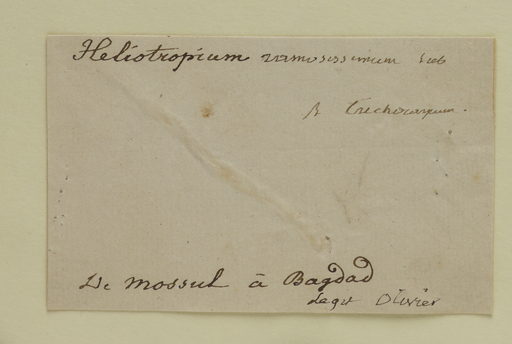 Heliotropium ramosissimum Sieb
β trichocarpum.
De Mossul à Bagdad
legit Olivier